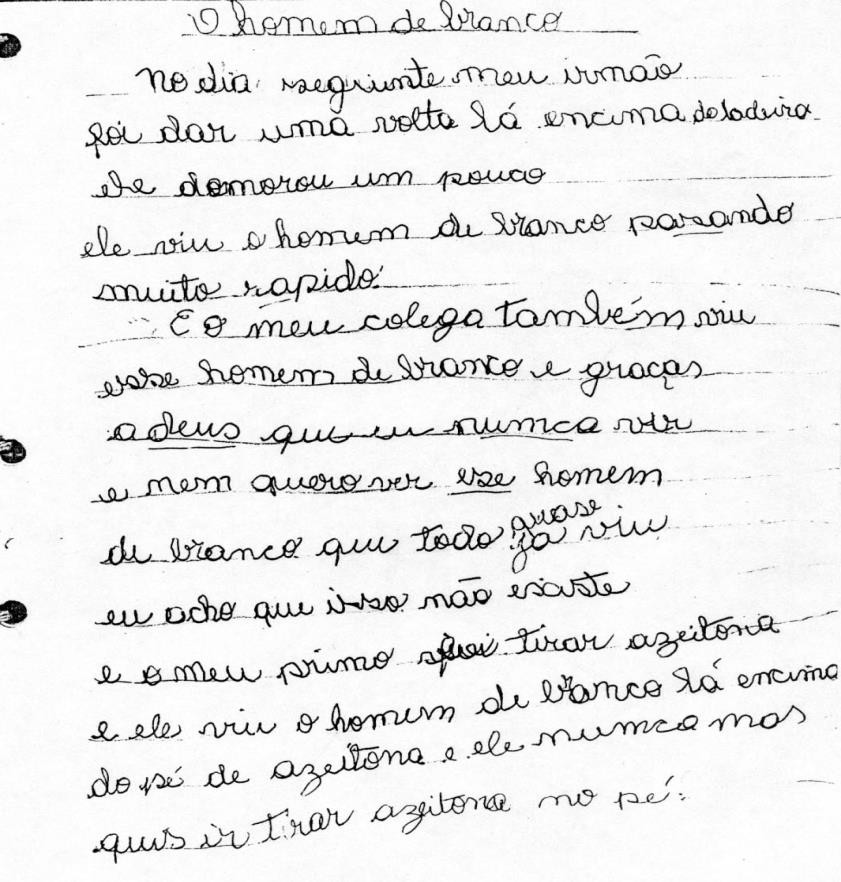 O homem de branco
no dia seguinte meu irmão
foi dar uma volta lá encima da ladeira
ele domorou um pouco
ele viu o homem de branco pasando
muito rapido.
E o meu colega também viu
esse homem de branco e graças
a deus que eu numca vir
e nem quero ver ese homem
de branco que todo quase já viu
eu acho que isso não existe
e o meu primo foi tirar azeitona
e ele viu o homem de branco lá encima
do pé de azeitona e ele numca mas
quis ir tirar azeitona no pé.